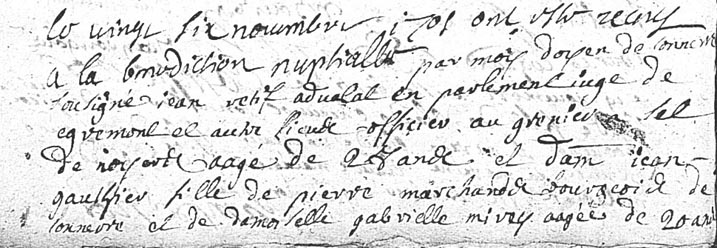 le vingt six novembre 1705 ont este receus
a la benediction nuptialle par moy doyen de tonnerre
sousigné jean retif advocat en parlement juge de
egremont et autre lieude officier au grenier a sel
de noyers aagé de 28 ande et dam jean
gauthier fille de pierre marchande bourgeoid de
tonnerre et de damoiselle gabrielle mires aagée de 20 ans